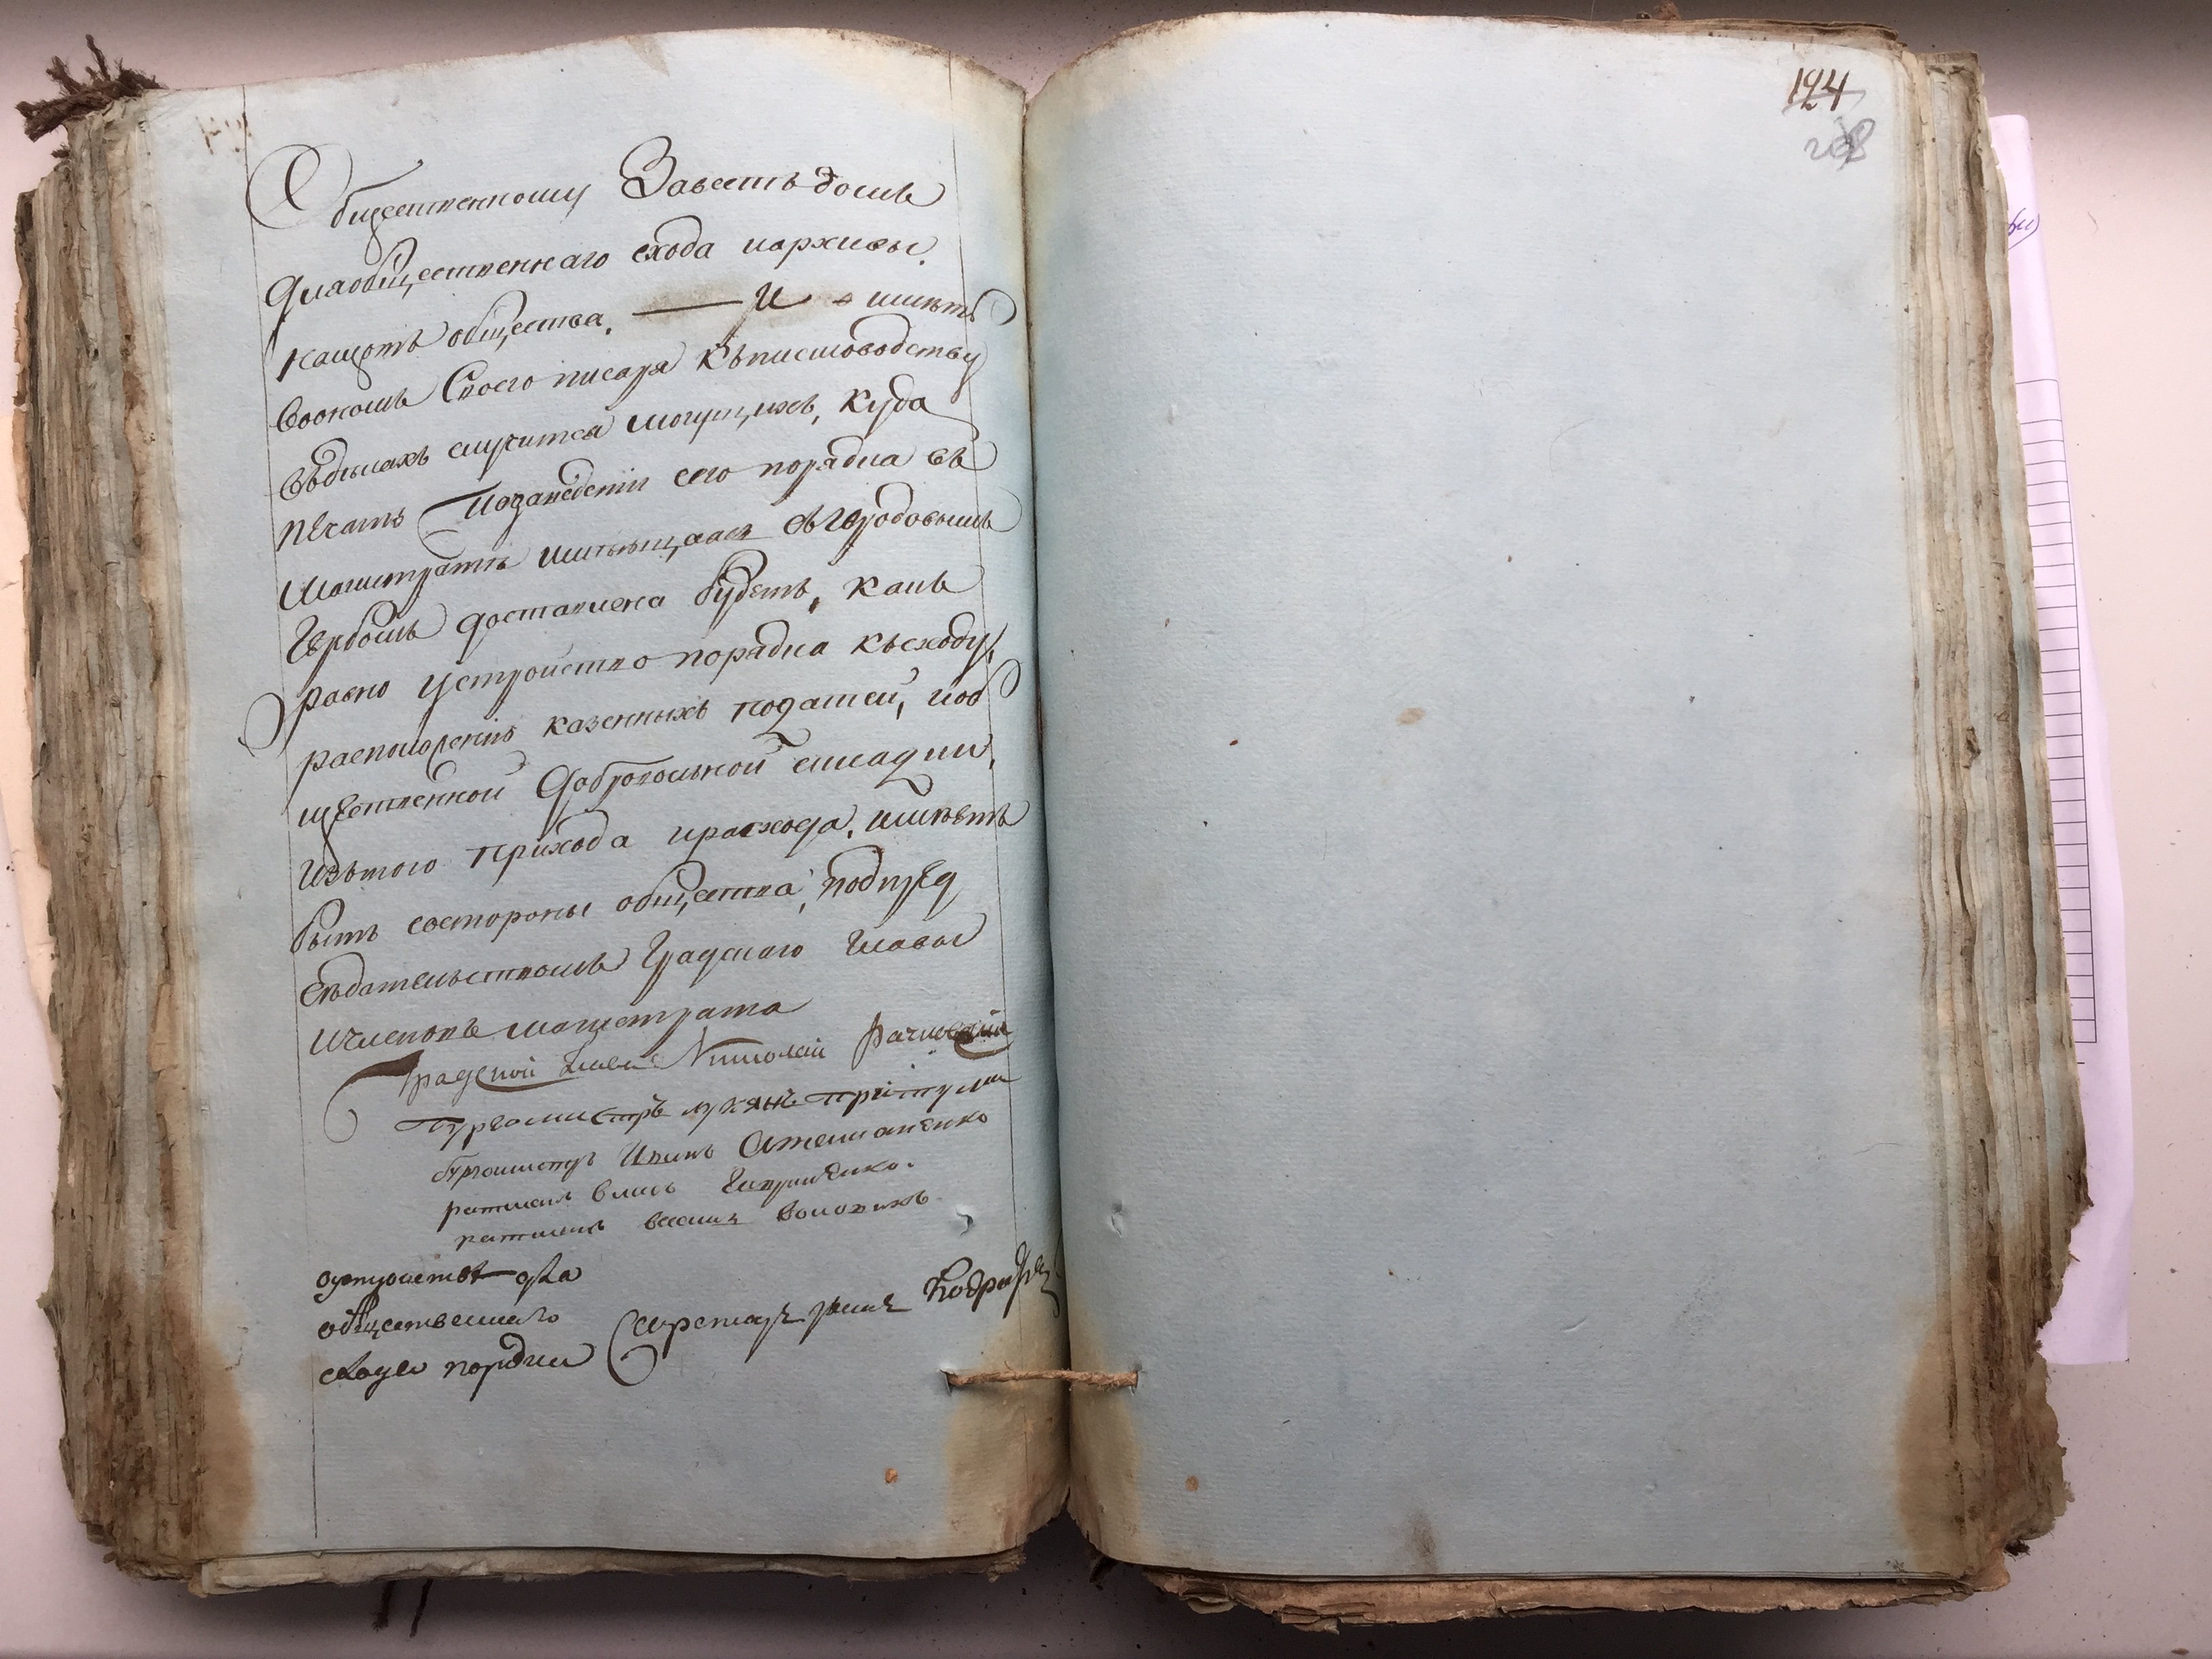 Общественному Завесть домъ
дляобщественнаго схода иархивы
насчотъ общества. — И имѣть
Воономъ Своего писаря Къписмоводству
вдѣлахъ случится могущихъ, куда
печать Позаведеніи сего порядка въ
Магистратѣ имѣющаяся съгородовымъ
Гербомъ доставлена будетъ, какъ
равно устройство порядка късходу,
расположенію казенныхъ податей, иоб
щественной Добровольной складки,
Изътого прихода ирасхода, имѣетъ
быть состороны общества, подпред
сѣдательствомъ Градскаго Главы
Ичленовъ магистрата
Градской Глава Николай
Бургомистръ лукянъ притула
бургомистръ Иванъ Степаненко
ратманъ
ратманъ
общественнаго
схода порядка
Секретарь
124